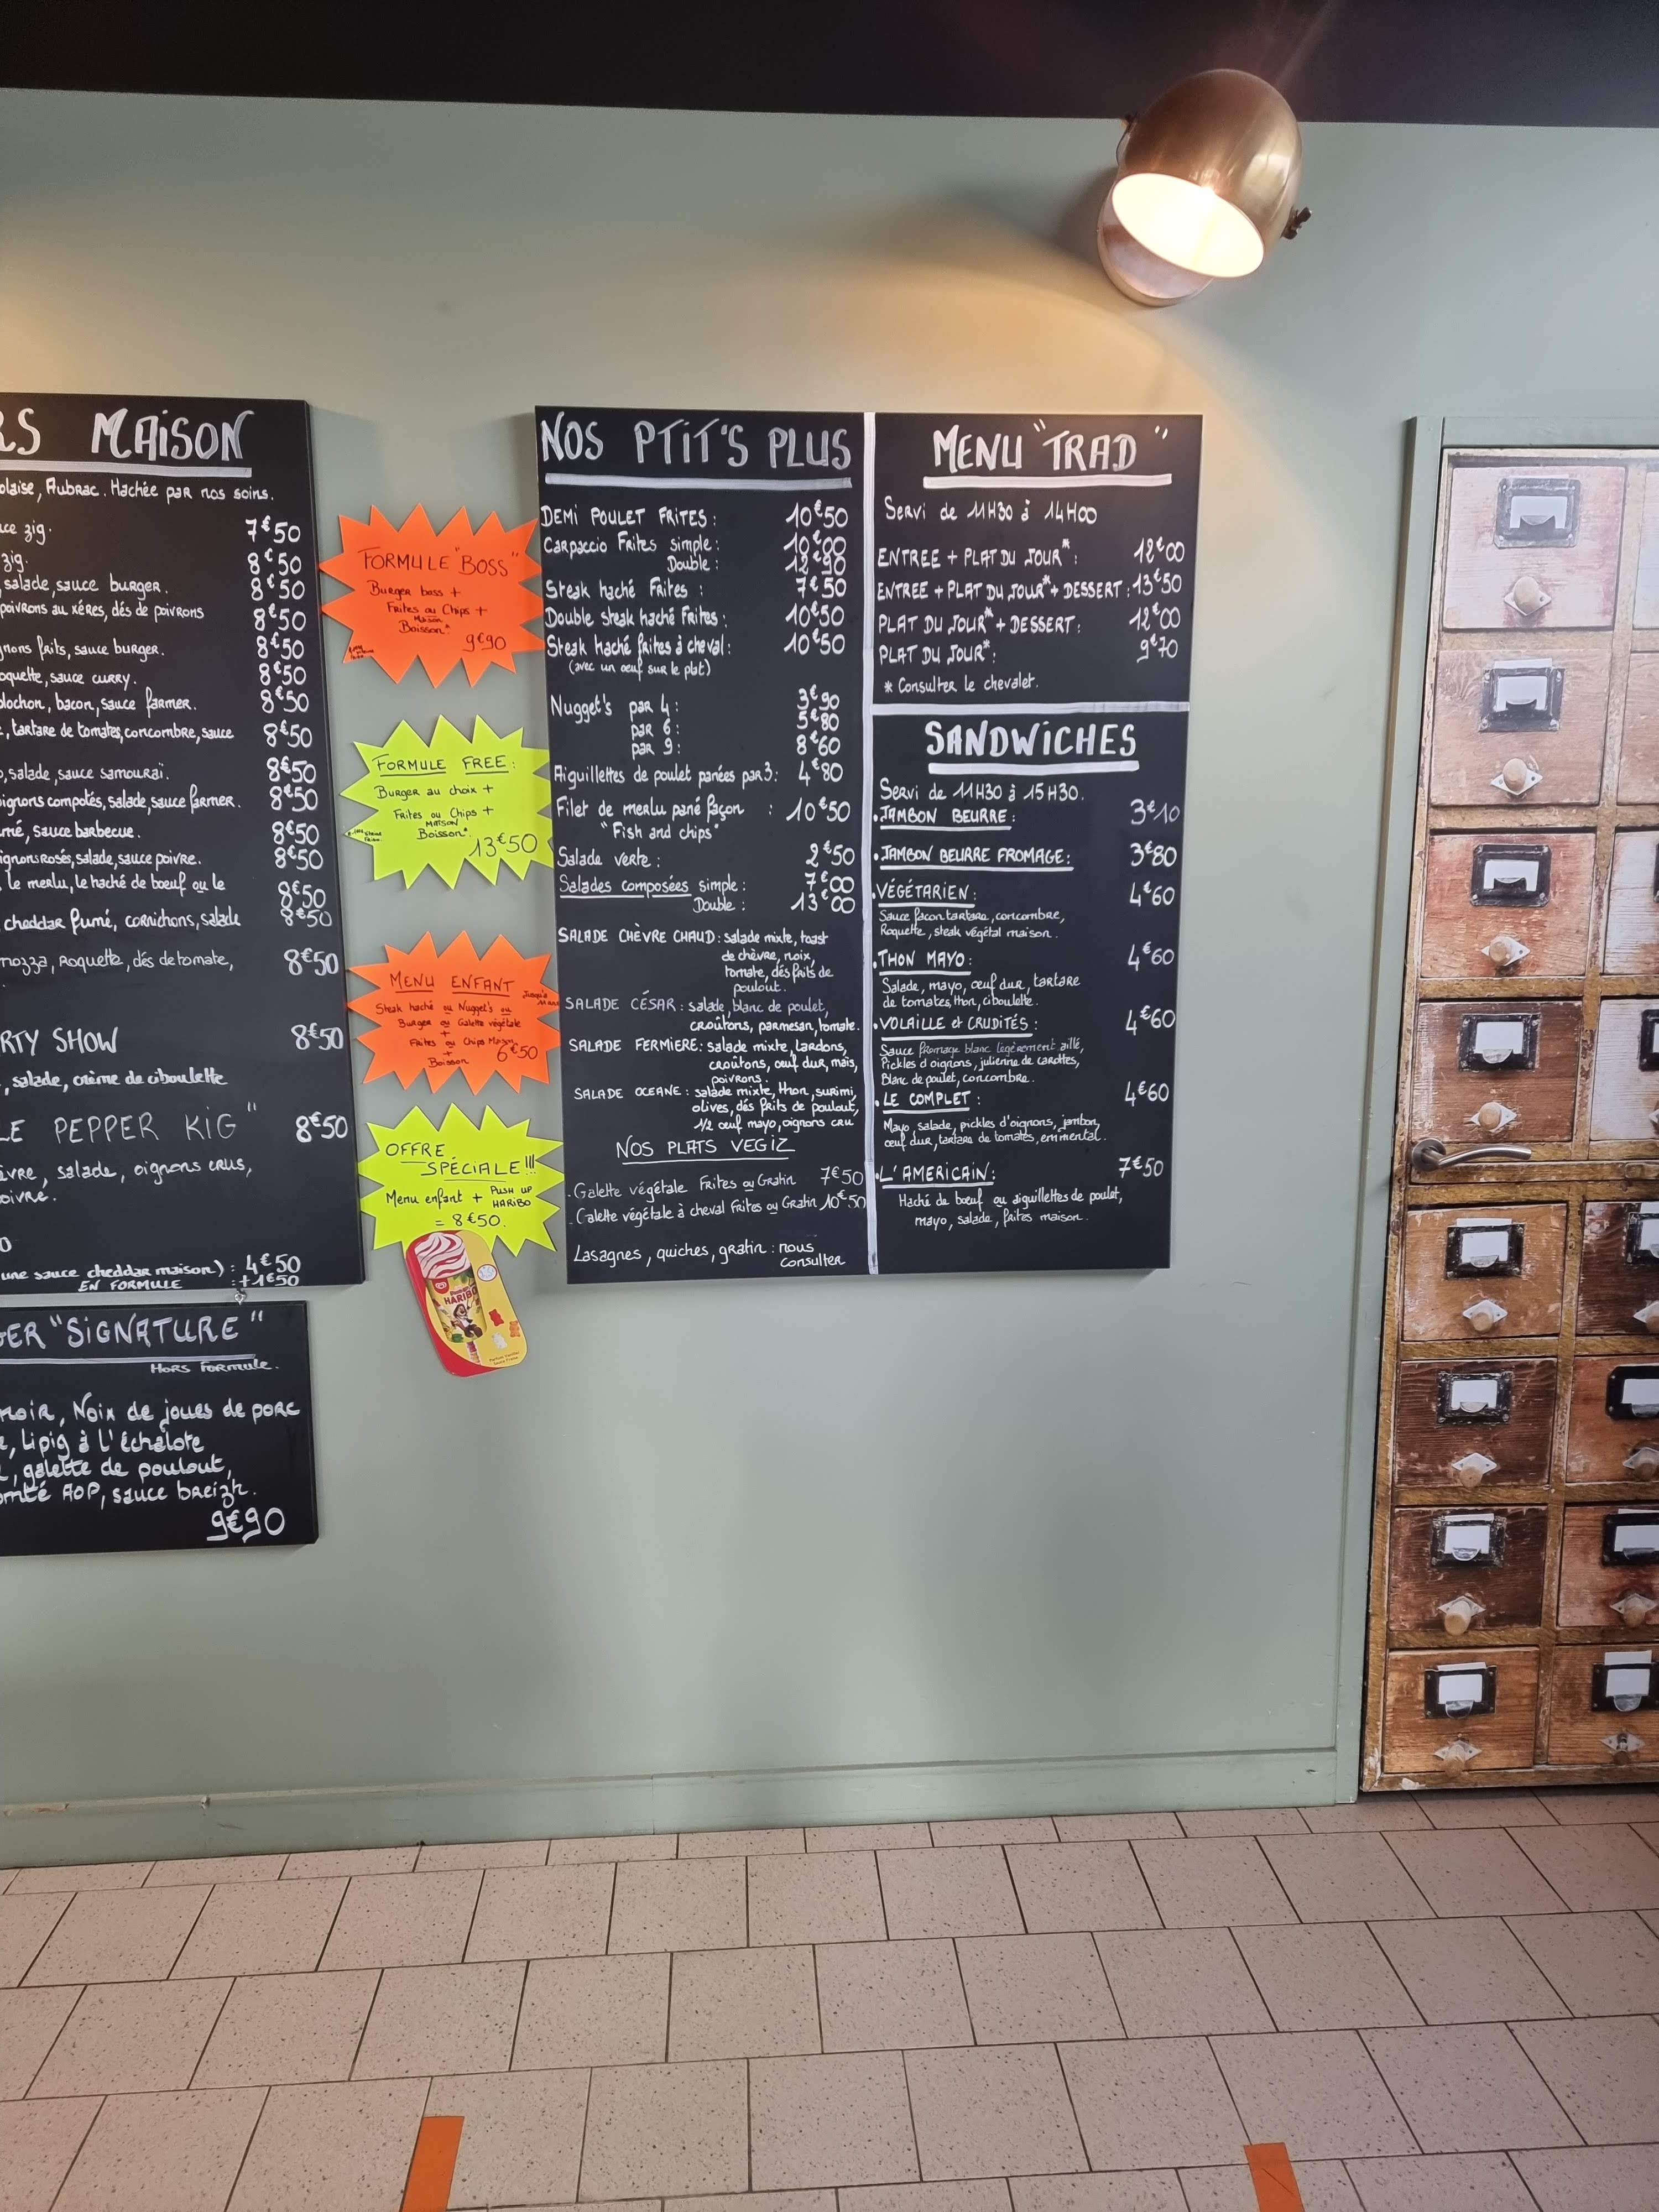 RS MAISON
olaise, Aubrac. Hachée par nos soins.
uce zig. 7€50
zig. 8€50
salade, sauce burger. 8€50
poivrons au xéres, dés de poivrons 8€50
gnons frits, sauce burger. 8€50
oquette, sauce curry. 8€50
blochon, bacon, sauce farmer. 8€50
, tartare de tomates, concombre, sauce 8€50
, salade, sauce samouraï. 8€50
oignons compotés, salade, sauce farmer. 8€50
mé, sauce barbecue. 8€50
ignons rosés, salade, sauce poivre. 8€50
le merlu, le haché de boeuf ou le 8€50
cheddar fumé, cornichons, salade 8€50
mozza, roquette, dés de tomate, 8€50
RTY SHOW 8€50
, salade, crème de ciboulette
LE PEPPER KIG" 8€50
ivre, salade, oignons crus,
oivre.
une sauce cheddar maison) : 4€50
EN FORMULE : +1€50
GER "SIGNATURE"
HORS FORMULE.
noir, Noix de joues de porc
e, Lipig à l'échalote
, galette de poulout,
omté AOP, sauce breizh.
9€90
FORMULE "BOSS"
Burger boss +
Frites ou Chips +
Maison
Boisson*
9€90
FORMULE FREE :
Burger au choix +
Frites ou Chips +
MAISON
Boisson*
13€50
MENU ENFANT
Steak haché ou Nugget's ou
Burger ou Galette végétale
+
Frites ou Chips Maison
+
Boisson
6€50
OFFRE
SPÉCIALE !!!
Menu enfant + PUSH UP
HARIBO
= 8€50.
HARIBO
NOS PTIT'S PLUS
DEMI POULET FRITES : 10€50
Carpaccio Frites simple : 10€00
Double : 12€90
Steak haché Frites : 7€50
Double steak haché Frites : 10€50
Steak haché frites à cheval : 10€50
(avec un oeuf sur le plat)
Nugget's par 4 : 3€90
par 6 : 5€80
par 9 : 8€60
Aiguillettes de poulet panées par 3 : 4€80
Filet de merlu pané façon : 10€50
"Fish and chips"
Salade verte : 2€50
Salades composées simple : 7€00
Double : 13€00
SALADE CHÈVRE CHAUD : salade mixte, toast
de chèvre, noix,
tomate, dés frits de
poulout.
SALADE CÉSAR : salade, blanc de poulet,
croûtons, parmesan, tomate.
SALADE FERMIERE : salade mixte, lardons,
croûtons, oeuf dur, maïs,
poivrons.
SALADE OCEANE : salade mixte, thon, surimi,
olives, dés frits de poulout,
1/2 oeuf mayo, oignons cru
NOS PLATS VEGIZ
- Galette végétale Frites ou Gratin 7€50
- Galette végétale à cheval Frites ou Gratin 10€50
Lasagnes, quiches, gratin : nous
consulter
MENU "TRAD"
Servi de 11H30 à 14H00
ENTREE + PLAT DU JOUR* : 12€00
ENTREE + PLAT DU JOUR* + DESSERT : 13€50
PLAT DU JOUR* + DESSERT : 12€00
PLAT DU JOUR* : 9€70
* Consulter le chevalet.
SANDWICHES
Servi de 11H30 à 15H30.
. JAMBON BEURRE : 3€10
. JAMBON BEURRE FROMAGE : 3€80
. VÉGÉTARIEN : 4€60
Sauce façon tartare, concombre,
Roquette, steak végétal maison.
. THON MAYO : 4€60
Salade, mayo, oeuf dur, tartare
de tomates, thon, ciboulette.
. VOLAILLE et CRUDITÉS : 4€60
Sauce fromage blanc légèrement aillé,
Pickles d'oignons, julienne de carottes,
Blanc de poulet, concombre.
. LE COMPLET : 4€60
Mayo, salade, pickles d'oignons, jambon,
oeuf dur, tartare de tomates, emmental.
. L'AMERICAIN : 7€50
Haché de boeuf ou aiguillettes de poulet,
mayo, salade, frites maison.